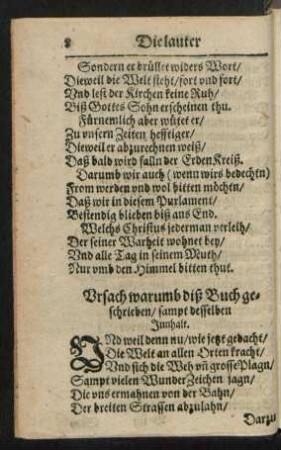 8 Die lauter
Sondern er brüllet widers Wort/
Dieweil die Welt steht/fort vnd fort/
Vnd lest der Kirchen keine Ruh/
Biß Gottes Sohn erscheinen thu.
Fürnemlich aber wütet er/
Zu vnsern Zeiten hefftiger/
Dieweil er abzurechnen weiß/
Daß bald wird falln der Erden Kreiß.
Darumb wir auch (wenn wirs bedechtn)
From werden vnd wol bitten möchtn/
Daß wir in diesem Purlament/
Bestendig blieben biß ans End.
Welchs Christus jederman verleih/
Der seiner Warheit wohnet bey/
Vnd alle Tag in seinem Muth/
Nur vmb den Himmel bitten thut.
Vrsach warumb diß Buch ge-
schrieben/ sampt desselben
Innhalt.
JNd weil denn nu/wie jetzt gedacht/
Die Welt an allen Orten kracht/
Vnd sich die Weh vñ grosse Plagn/
Sampt vielen Wunder Zeichen jagn/
Die vns ermahnen von der Bahn/
Der breiten Strassen abzulahn/
Darzu